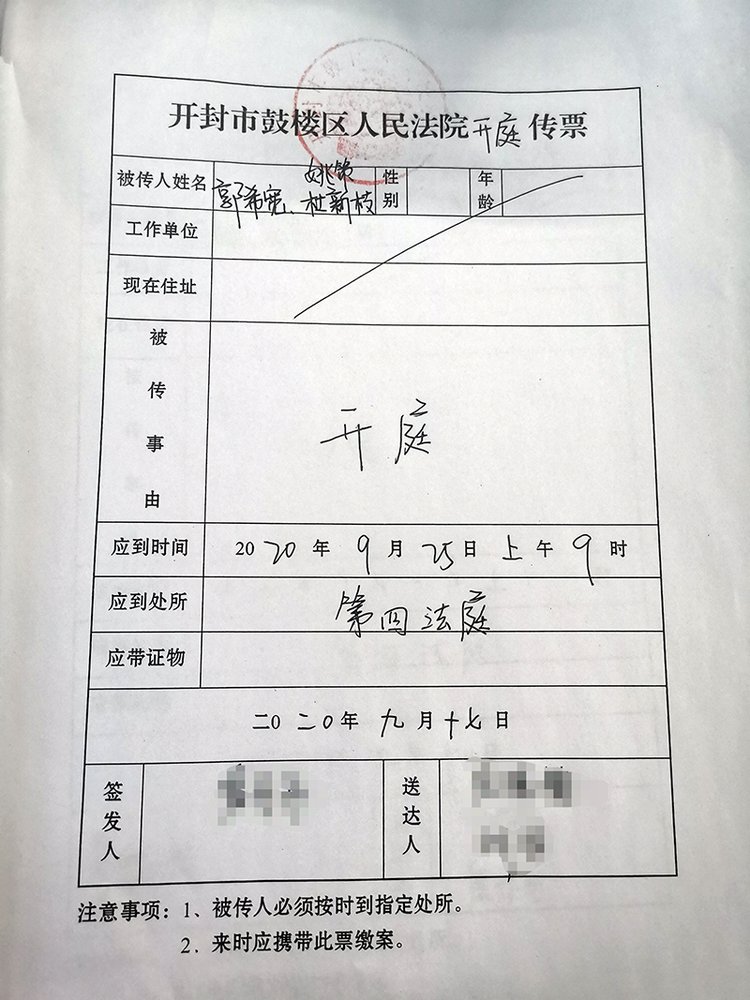 开封市鼓楼区人民法院开庭传票
被传人姓名 郭希宽、姚策 杜新枝 性别 年龄
工作单位
现在住址
被传事由 开庭
应到时间 2020年9月25日上午9时
应到处所 第四法庭
应带证物
二0二0年九月十七日
签发人 送达人
注意事项：1、被传人必须按时到指定处所。
2．来时应携带此票缴案。